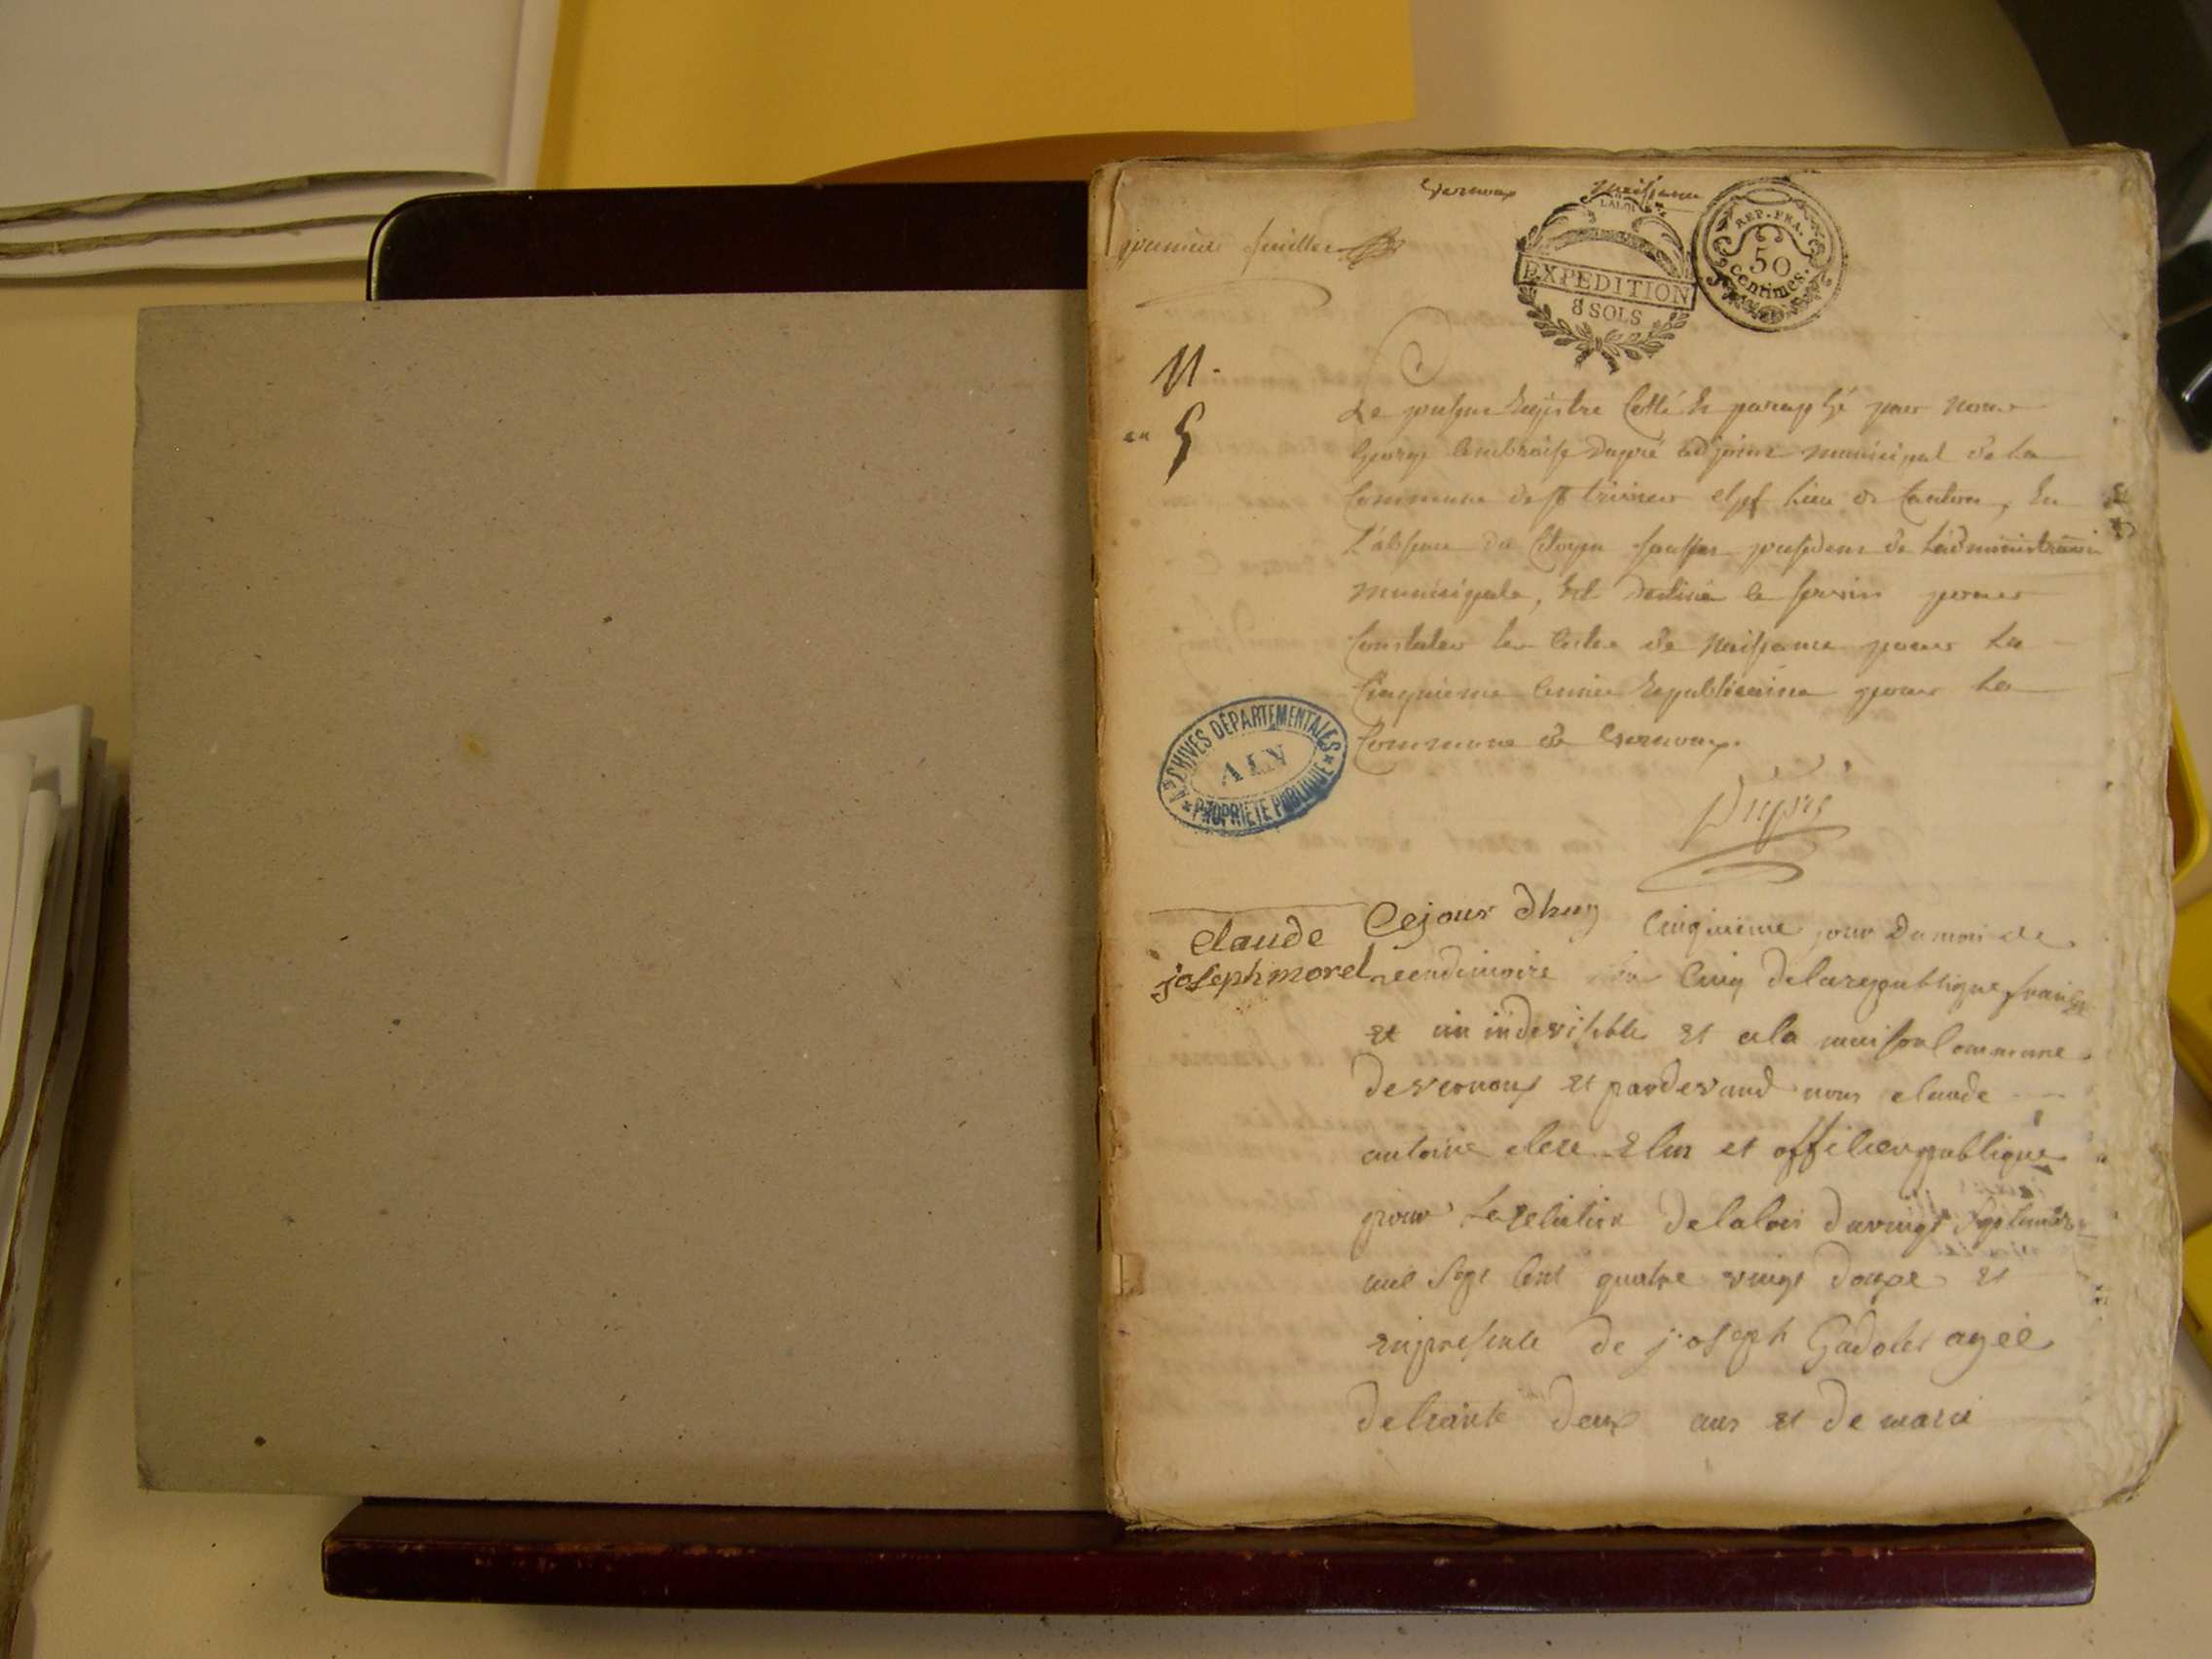 Vernoux Naissance
premier feuillet
LA LOI
EXPEDITION
8 SOLS
REP. FRA.
50
centimes.
N.
an 5
Le present Registre Cotté et paraphé par nous
George Dupré adjoint municipal de la
Commune de st trivier chef lieu de Canton, En
L'absence du Citoyen president de L'administration
municipale, Est destiné a servir pour
Constater les Actes de Naissance pour La
Cinquieme Année Republicaine pour La
Commune de Vernoux.
ARCHIVES DÉPARTEMENTALES
AIN
PROPRIÉTÉ PUBLIQUE
Dupré
Claude
joseph morel
Cejour dhuy Cinquieme jour du moi de
vendimoire cinq delarepublique
et un indevisible et ala maison Commune
devernoux et pardevand nous claude
antoine clerc Elus et offisier publique
pour delalois duvingt Septembre
mil Sept Cent quatre vingt douze et
enpresence de joseph Gadolet agée
detrante deux ans et de marie